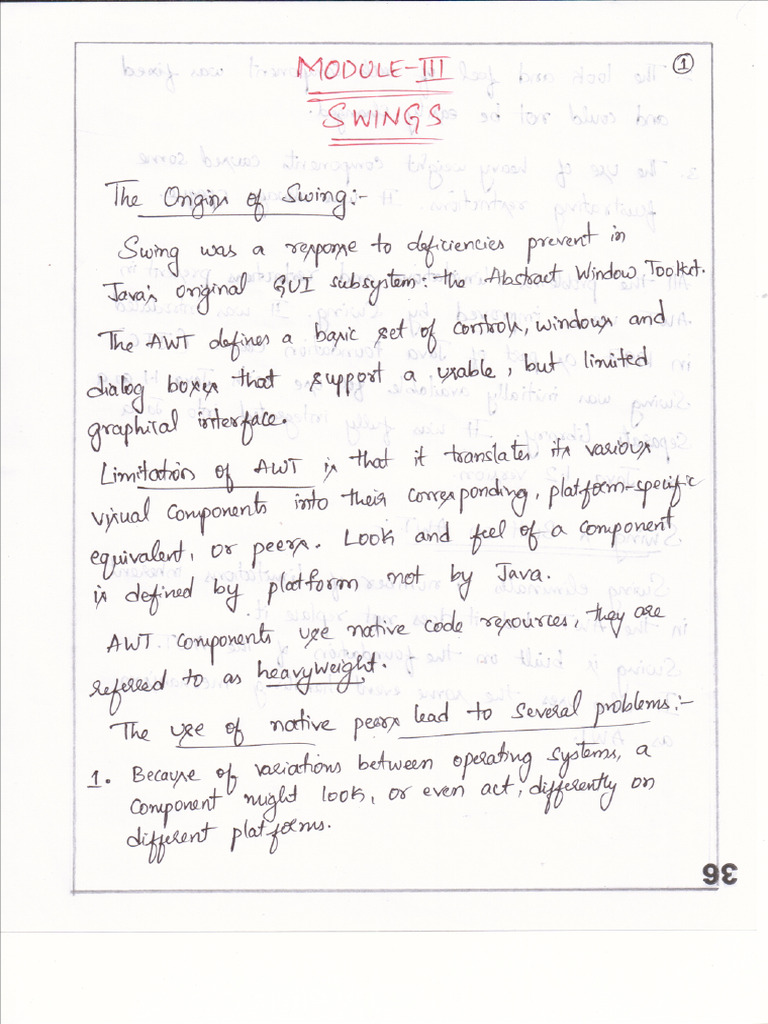 ①
MODULE-III
SWINGS
The Origins of Swing:-
Swing was a response to deficiencies present in
Java's original GUI subsystem: the Abstract Window Toolkit.
The AWT defines a basic set of controls, windows and
dialog boxes that support a usable, but limited
graphical interface.
Limitation of AWT is that it translates its various
visual components into their corresponding, platform-specific
equivalent, or peers. Look and feel of a component
is defined by platform not by Java.
AWT components use native code resources, they are
referred to as heavyweight.
The use of native peers lead to several problems:-
1. Because of variations between operating systems, a
component might look, or even act, differently on
different platforms.
36